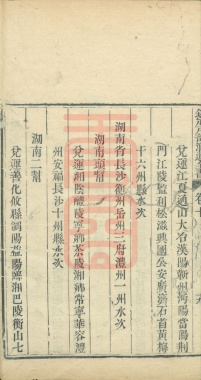 兌運江夏通山大冶漢陽蘄州灣陽當陽荊
門江陵監利松滋興國公安廣濟石首黃梅
十六州縣水次
湖南省長沙衡州岳州三府澧州一州水次
湖南頭幫
兌運湘陰醴陵寧鄉茶陵湘鄉常寧華容澧
州安福長沙十州縣水次
湖南二幫
兌運善化攸縣瀏陽益陽湘巴陵衡山七